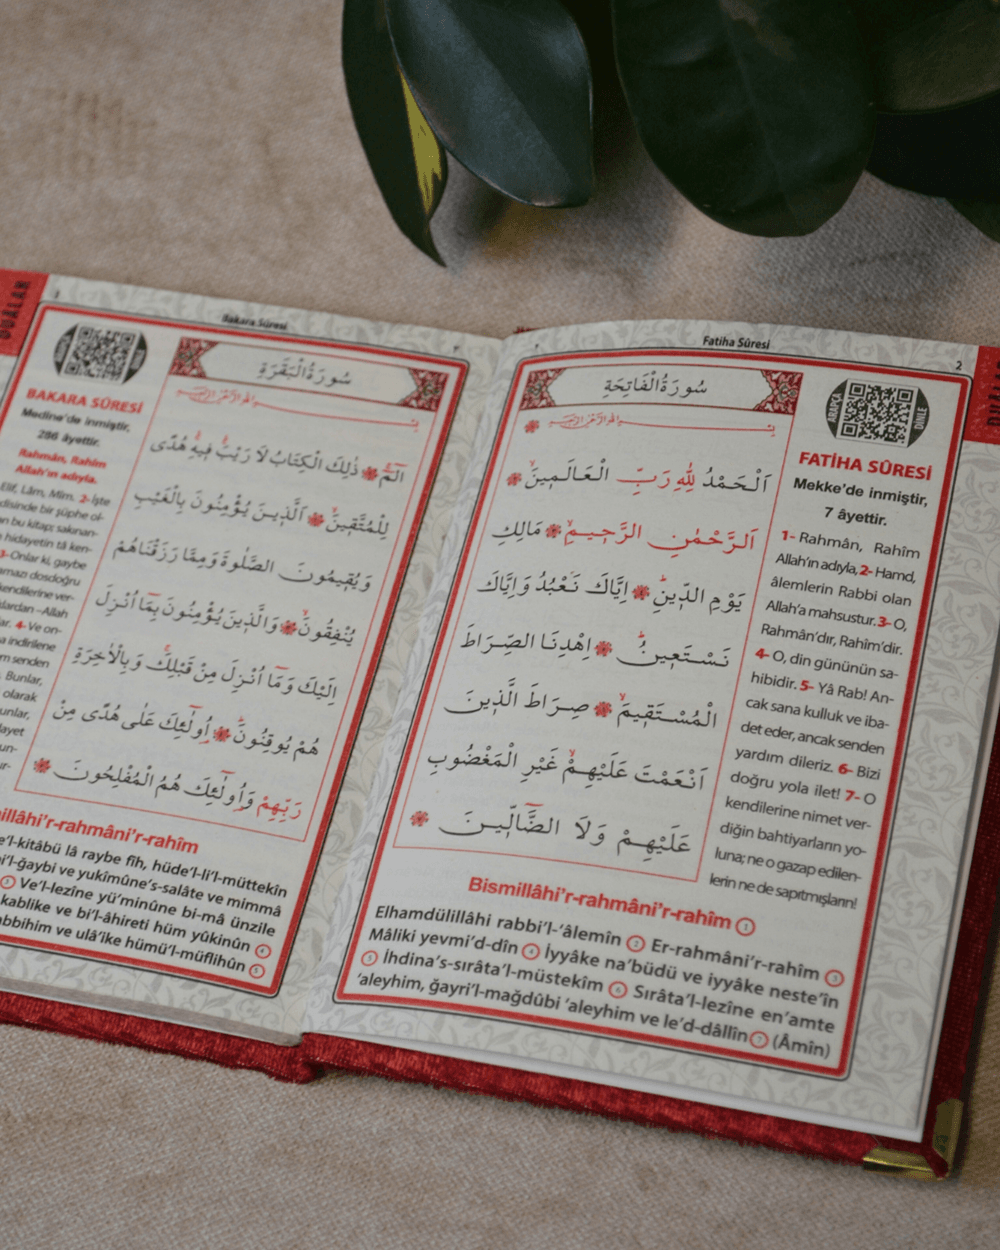 Fatiha Sûresi
2
سُورَةُ الْفَاتِحَةِ
اَلْحَمْدُ لِلّٰهِ رَبِّ الْعَالَمٖينَۙ
اَلرَّحْمٰنِ الرَّحٖيمِۙ مَالِكِ
يَوْمِ الدّٖينِۜ اِيَّاكَ نَعْبُدُ وَاِيَّاكَ
نَسْتَعٖينُۜ اِهْدِنَا الصِّرَاطَ
الْمُسْتَقٖيمَۙ صِرَاطَ الَّذٖينَ
اَنْعَمْتَ عَلَيْهِمْۙ غَيْرِ الْمَغْضُوبِ
عَلَيْهِمْ وَلَا الضَّٓالّٖينَ
ARAPÇA
DİNLE
FATİHA SÛRESİ
Mekke'de inmiştir,
7 âyettir.
1- Rahmân, Rahîm
Allah'ın adıyla, 2- Hamd,
âlemlerin Rabbi olan
Allah'a mahsustur. 3- O,
Rahmân'dır, Rahîm'dir.
4- O, din gününün sa-
hibidir. 5- Yâ Rab! An-
cak sana kulluk ve iba-
det eder, ancak senden
yardım dileriz. 6- Bizi
doğru yola ilet! 7- O
kendilerine nimet ver-
diğin bahtiyarların yo-
luna; ne o gazap edilen-
lerin ne de sapıtmışların!
Bismillâhi'r-rahmâni'r-rahîm 1
Elhamdülillâhi rabbi'l-'âlemîn 2 Er-rahmâni'r-rahîm 3
Mâliki yevmi'd-dîn 4 İyyâke na'büdü ve iyyâke neste'în
5 İhdina's-sırâta'l-müstekîm 6 Sırâta'l-lezîne en'amte
'aleyhim, ğayri'l-mağdûbi 'aleyhim ve le'd-dâllîn 7 (Âmîn)
Bakara Sûresi
سُورَةُ الْبَقَرَةِ
الٓمٓۚ ذٰلِكَ الْكِتَابُ لَا رَيْبَۚ فٖيهِۚ هُدًى
لِلْمُتَّقٖينَۙ اَلَّذٖينَ يُؤْمِنُونَ بِالْغَيْبِ
وَيُقٖيمُونَ الصَّلٰوةَ وَمِمَّا رَزَقْنَاهُمْ
يُنْفِقُونَۙ وَالَّذٖينَ يُؤْمِنُونَ بِمَٓا اُنْزِلَ
اِلَيْكَ وَمَٓا اُنْزِلَ مِنْ قَبْلِكَۚ وَبِالْاٰخِرَةِ
هُمْ يُوقِنُونَۜ اُو۬لٰٓئِكَ عَلٰى هُدًى مِنْ
رَبِّهِمْ وَاُو۬لٰٓئِكَ هُمُ الْمُفْلِحُونَ
BAKARA SÛRESİ
Medine'de inmiştir,
286 âyettir.
Rahmân, Rahîm
Allah'ın adıyla.
Elif, Lâm, Mîm. 2- İşte
disinde bir şüphe ol-
n bu kitap; sakınan-
hidayetin tâ ken-
3- Onlar ki, gaybe
amazı dosdoğru
kendilerine ver-
lardan –Allah
lar. 4- Ve on-
a indirilene
m senden
Bunlar,
olarak
unlar,
dayet
un-
ur-
illâhi'r-rahmâni'r-rahîm
e'l-kitâbü lâ raybe fîh, hüde'l-li'l-müttekîn
i'l-ğaybi ve yukîmûne's-salâte ve mimmâ
3 Ve'l-lezîne yü'minûne bi-mâ ünzile
kablike ve bi'l-âhireti hüm yûkinûn 4
abbihim ve ulâ'ike hümü'l-müflihûn 5